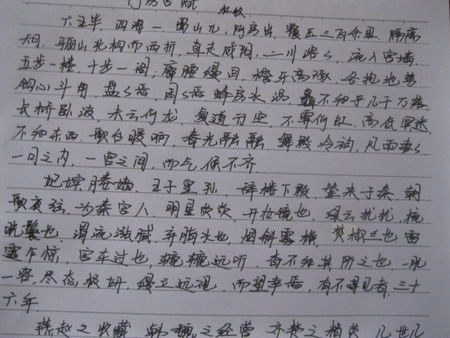 阿房宫赋 杜牧
六王毕 四海一 蜀山兀,阿房出,覆压三百余里,隔离
天日,骊山北构而西折,直走咸阳,二川溶溶,流入宫墙,
五步一楼,十步一阁;廊腰缦回,檐牙高啄,各抱地势
钩心斗角,盘盘焉,囷囷焉 蜂房水涡,矗不知乎几千万落,
长桥卧波,未云何龙,复道行空,不霁何虹,高低冥迷
不知东西 歌台暖响,春光融融,舞殿冷袖,风雨凄凄
一日之内,一宫之间,而气候不齐
妃嫔媵嫱,王子皇孙,辞楼下殿,辇来于秦,朝
歌夜弦,为秦宫人,明星荧荧,开妆镜也,绿云扰扰,梳
晓鬟也,渭流涨腻,弃脂水也,烟斜雾横,焚椒兰也,雷
霆乍惊,宫车过也,辘辘远听,杳不知其所之也,一肌
一容,尽态极妍,缦立远视,而望幸焉,有不得见者,三十
六年
燕赵之收藏 韩魏之经营 齐楚之精英 几世几